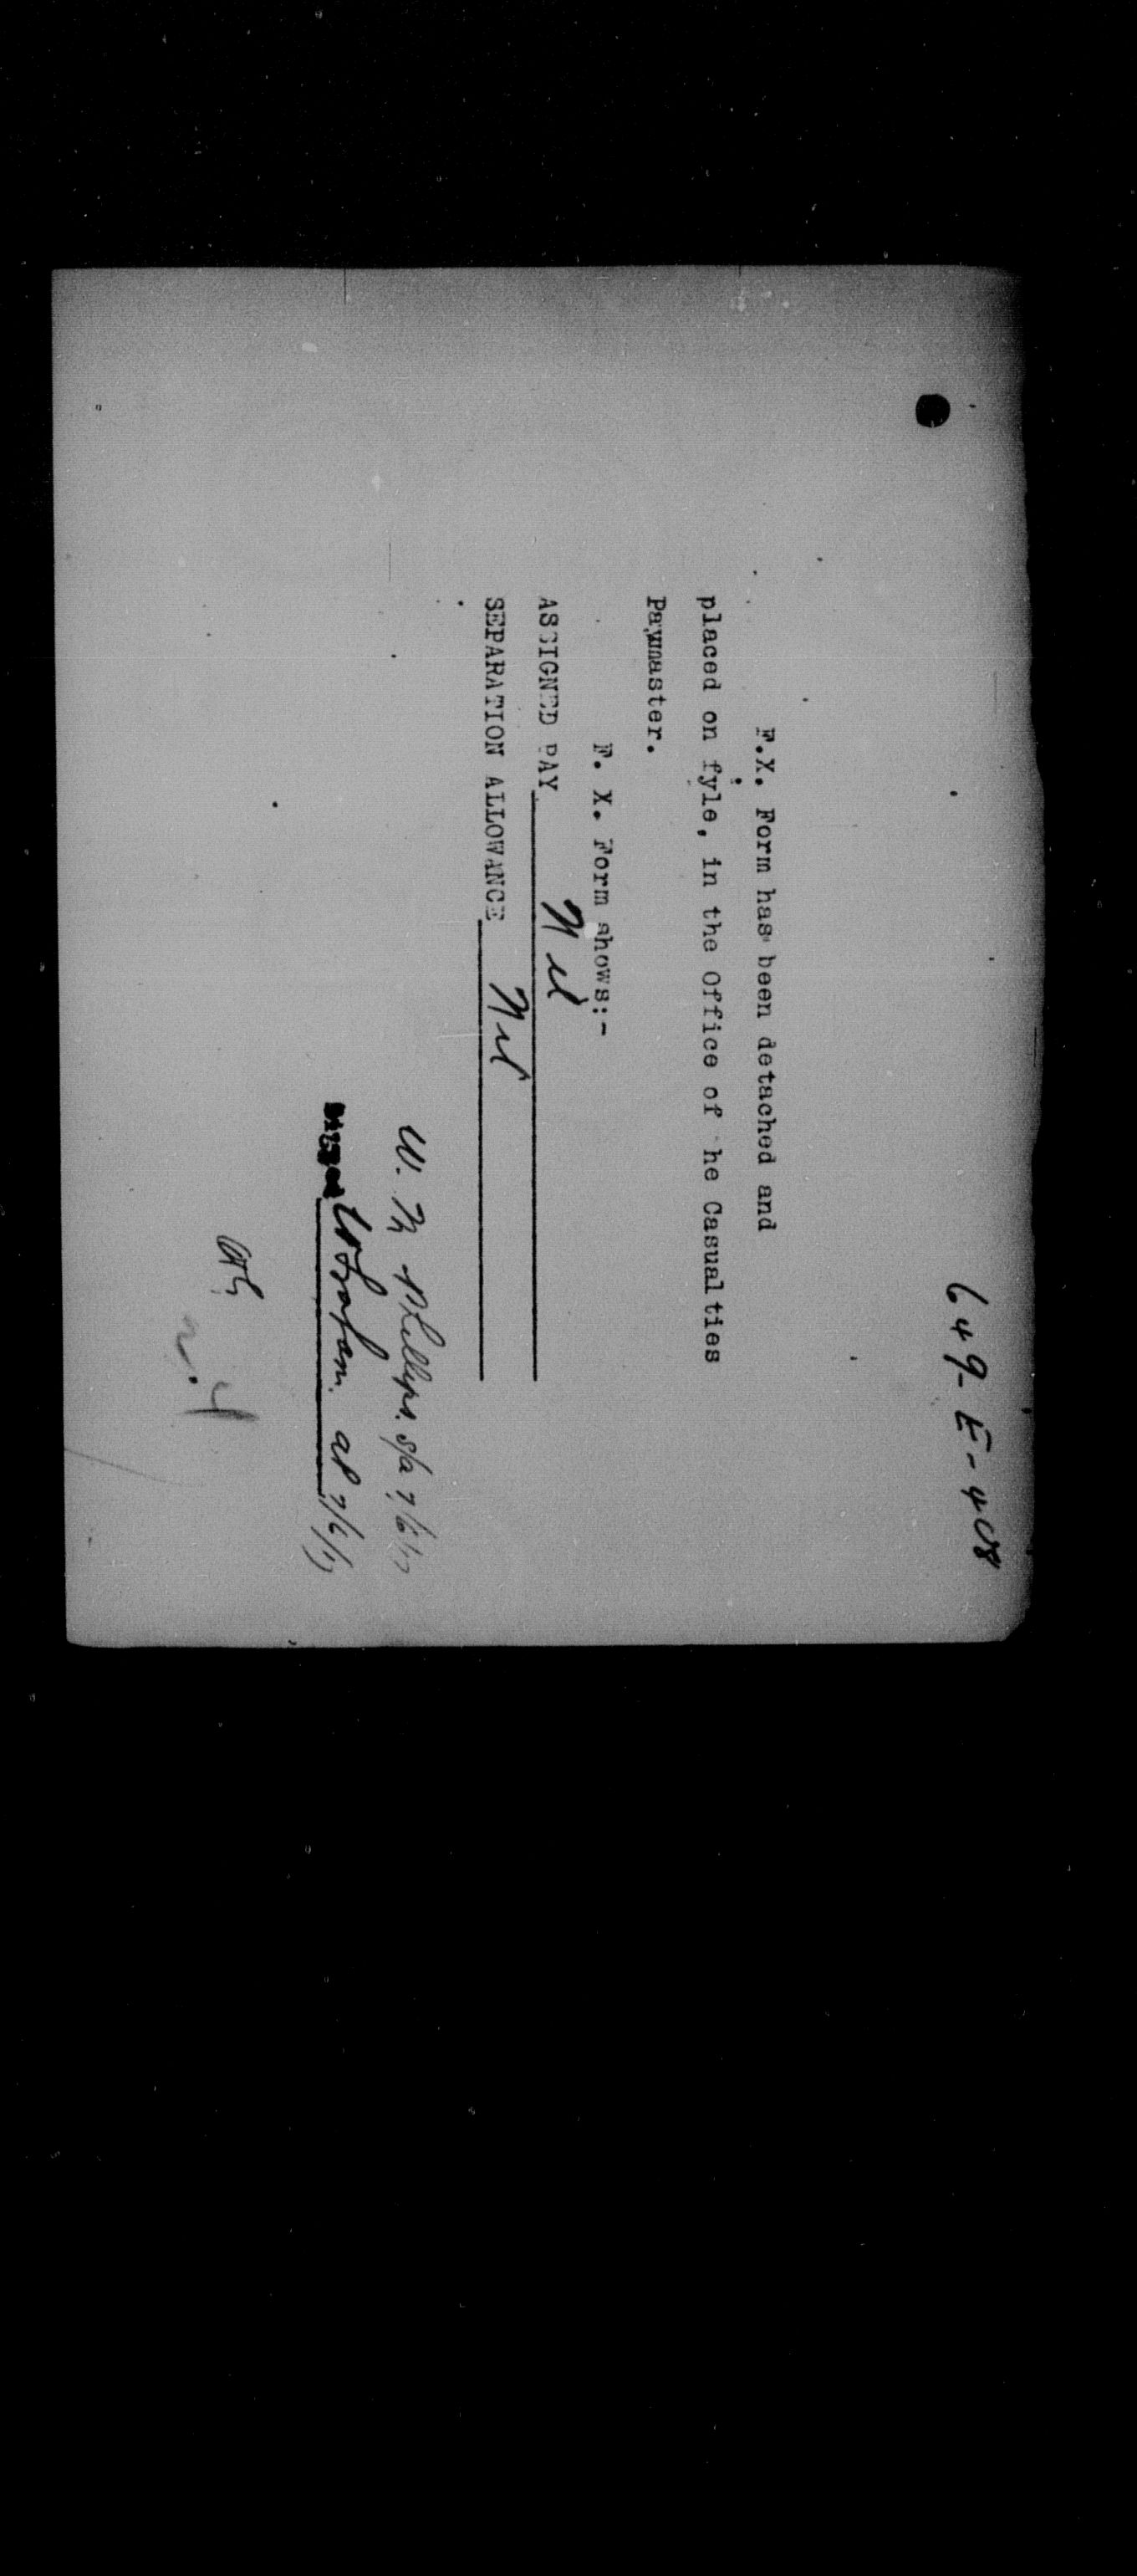 649-E-408
F.X. Form has been detached and
placed on fyle, in the Office of he Casualties
Paymaster.
F. X. Form shows:-
ASSIGNED PAY Nil
SEPARATION ALLOWANCE Nil
W. M Phillips. S/a 7/6/17
Graham. AP 7/6/17